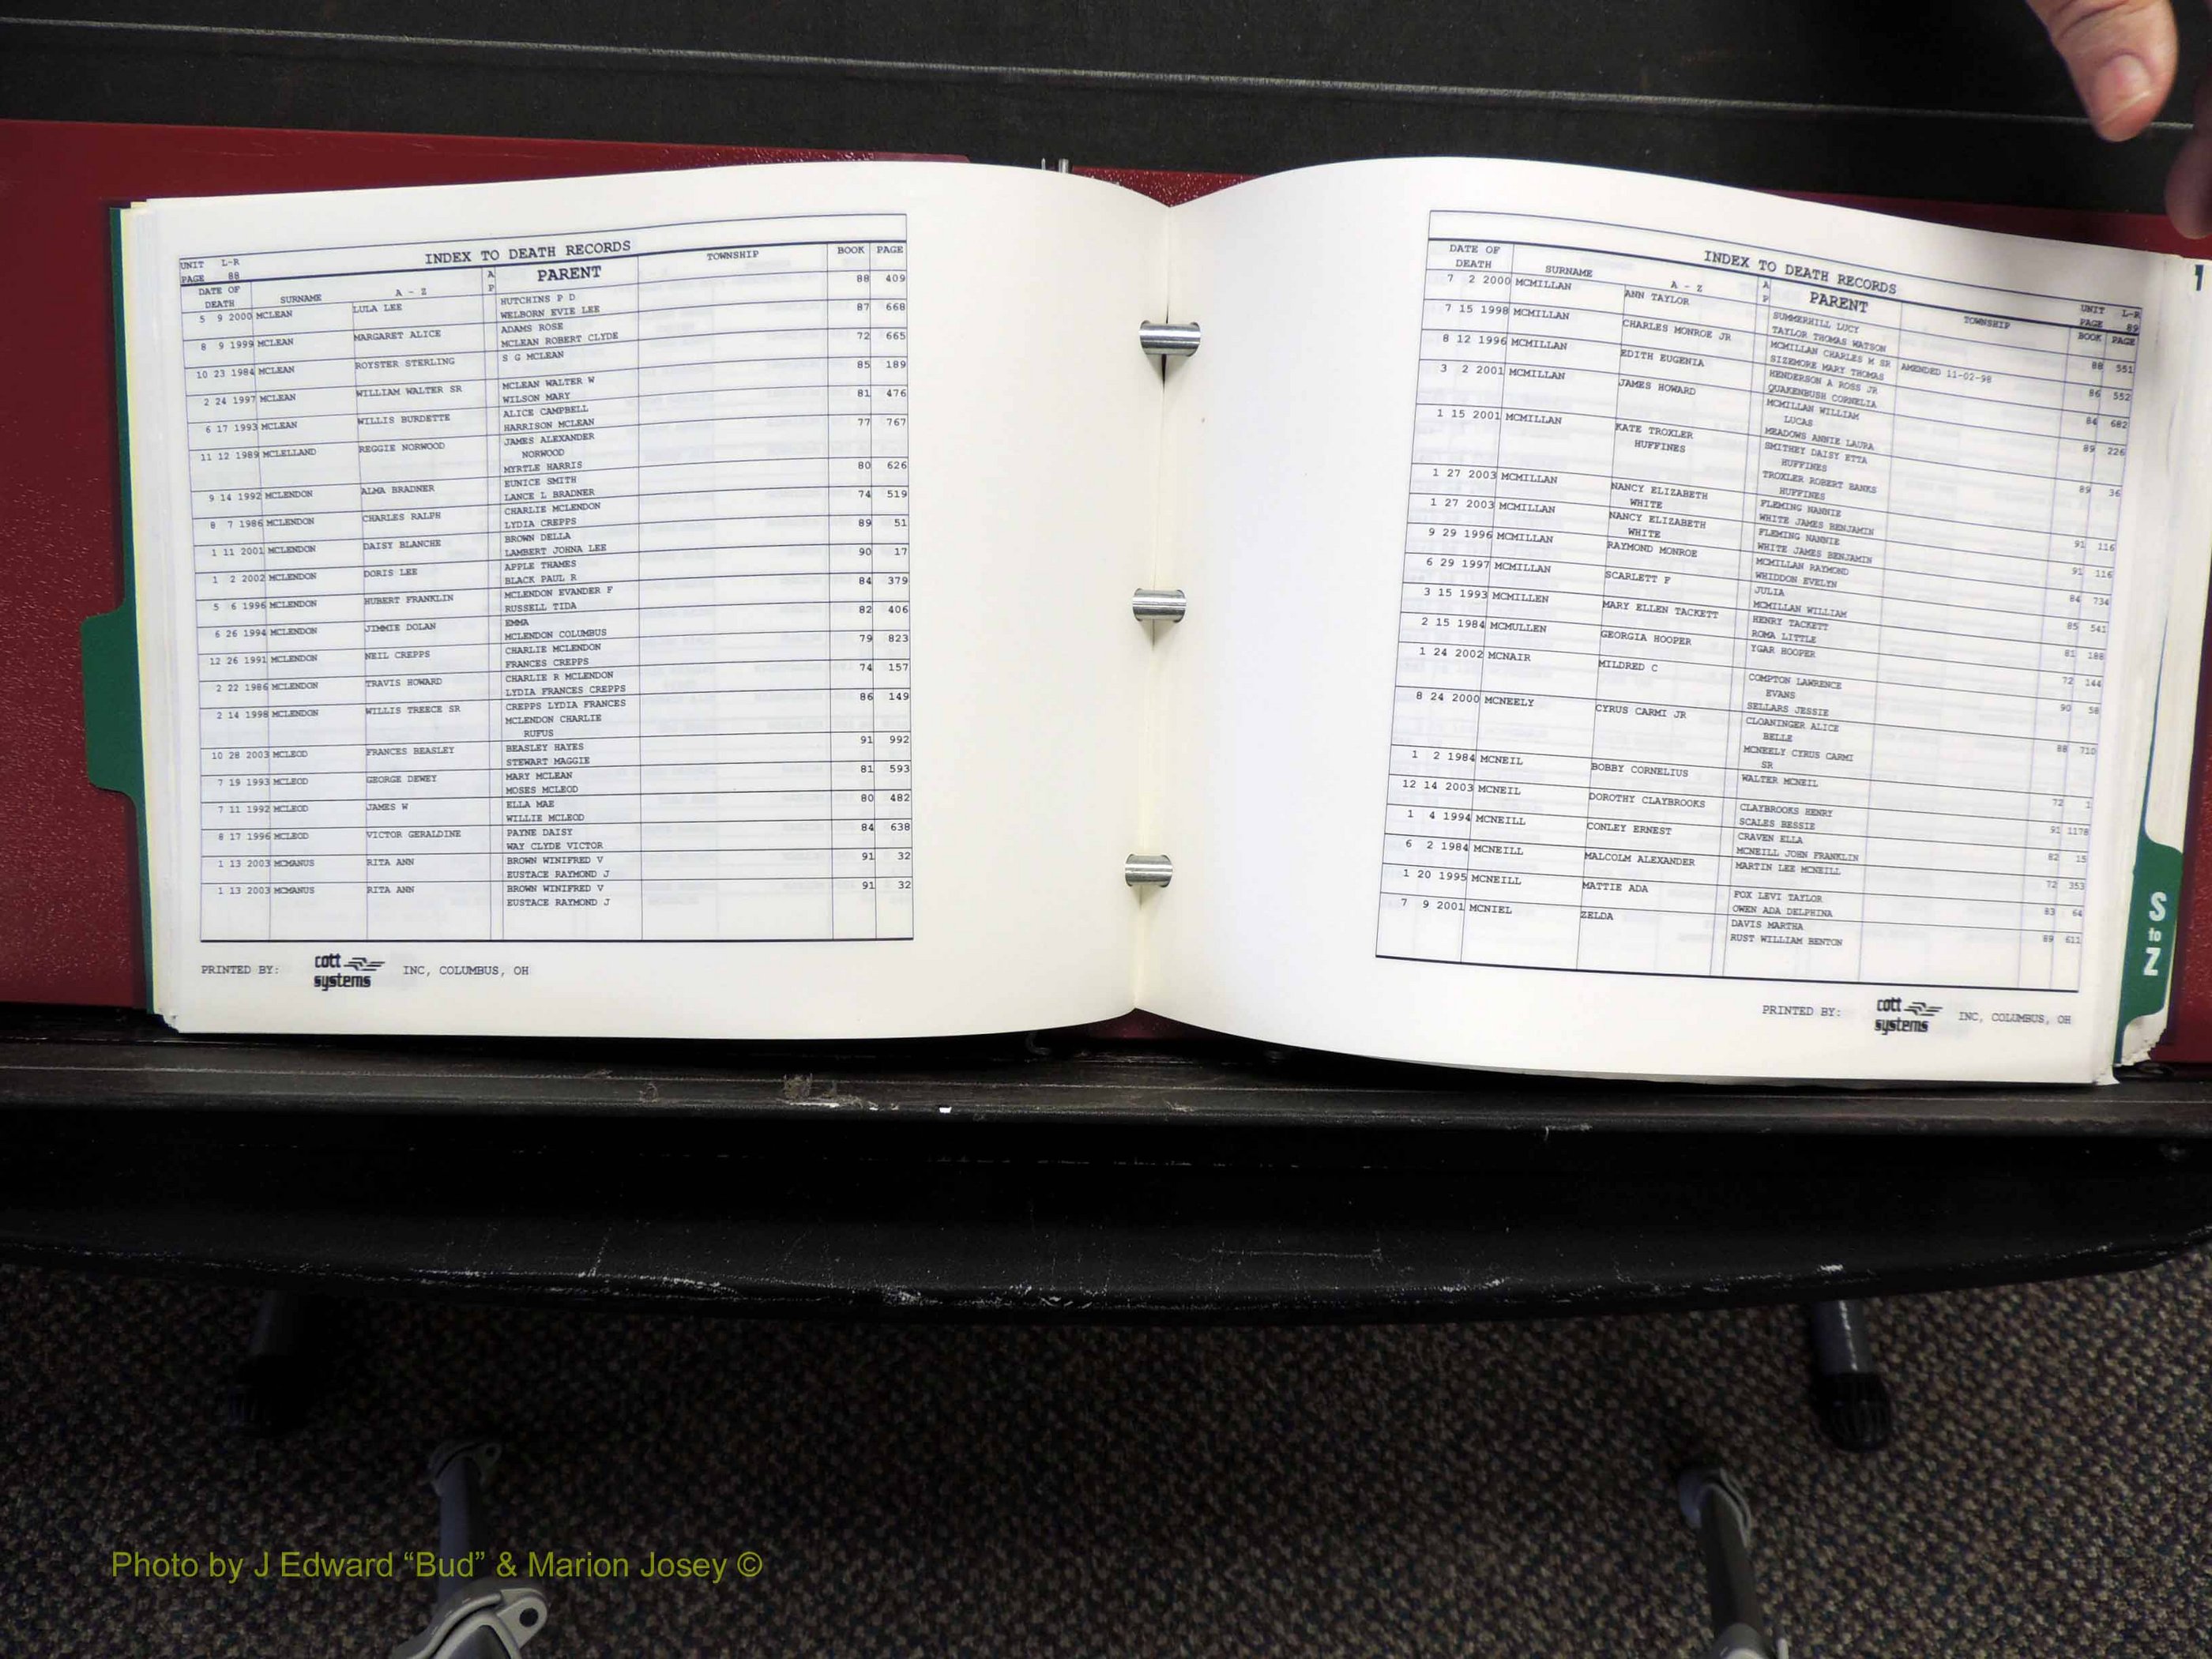 INDEX TO DEATH RECORDS
UNIT L-R
PAGE 88
DATE OF DEATH SURNAME A - Z A P PARENT TOWNSHIP BOOK PAGE
5 9 2000 MCLEAN LULA LEE HUTCHINS P D 88 409
WELBORN EVIE LEE
8 9 1999 MCLEAN MARGARET ALICE ADAMS ROSE 87 668
MCLEAN ROBERT CLYDE
10 23 1984 MCLEAN ROYSTER STERLING S G MCLEAN 72 665
2 24 1997 MCLEAN WILLIAM WALTER SR MCLEAN WALTER W 85 189
WILSON MARY
6 17 1993 MCLEAN WILLIS BURDETTE ALICE CAMPBELL 81 476
HARRISON MCLEAN
11 12 1989 MCLELLAND REGGIE NORWOOD JAMES ALEXANDER 77 767
NORWOOD
MYRTLE HARRIS
9 14 1992 MCLENDON ALMA BRADNER EUNICE SMITH 80 626
LANCE L BRADNER
8 7 1986 MCLENDON CHARLES RALPH CHARLIE MCLENDON 74 519
LYDIA CREPPS
1 11 2001 MCLENDON DAISY BLANCHE BROWN DELLA 89 51
LAMBERT JOHNA LEE
1 2 2002 MCLENDON DORIS LEE APPLE THAMES 90 17
BLACK PAUL R
5 6 1996 MCLENDON HUBERT FRANKLIN MCLENDON EVANDER F 84 379
RUSSELL TIDA
6 26 1994 MCLENDON JIMMIE DOLAN EMMA 82 406
MCLENDON COLUMBUS
12 26 1991 MCLENDON NEIL CREPPS CHARLIE MCLENDON 79 823
FRANCES CREPPS
2 22 1986 MCLENDON TRAVIS HOWARD CHARLIE R MCLENDON 74 157
LYDIA FRANCES CREPPS
2 14 1998 MCLENDON WILLIS TREECE SR CREPPS LYDIA FRANCES 86 149
MCLENDON CHARLIE
RUFUS
10 28 2003 MCLEOD FRANCES BEASLEY BEASLEY HAYES 91 992
STEWART MAGGIE
7 19 1993 MCLEOD GEORGE DEWEY MARY MCLEAN 81 593
MOSES MCLEOD
7 11 1992 MCLEOD JAMES W ELLA MAE 80 482
WILLIE MCLEOD
8 17 1996 MCLEOD VICTOR GERALDINE PAYNE DAISY 84 638
WAY CLYDE VICTOR
1 13 2003 MCMANUS RITA ANN BROWN WINIFRED V 91 32
EUSTACE RAYMOND J
1 13 2003 MCMANUS RITA ANN BROWN WINIFRED V 91 32
EUSTACE RAYMOND J
PRINTED BY: cott systems INC, COLUMBUS, OH
INDEX TO DEATH RECORDS
UNIT L-R
PAGE 89
DATE OF DEATH SURNAME A - Z A P PARENT TOWNSHIP BOOK PAGE
7 2 2000 MCMILLAN ANN TAYLOR SUMMERHILL LUCY 88 551
TAYLOR THOMAS WATSON
7 15 1998 MCMILLAN CHARLES MONROE JR MCMILLAN CHARLES M SR AMENDED 11-02-98 86 552
SIZEMORE MARY THOMAS
8 12 1996 MCMILLAN EDITH EUGENIA HENDERSON A ROSS JR 84 682
QUAKENBUSH CORNELIA
3 2 2001 MCMILLAN JAMES HOWARD MCMILLAN WILLIAM 89 226
LUCAS
MEADOWS ANNIE LAURA
1 15 2001 MCMILLAN KATE TROXLER SMITHEY DAISY ETTA 89 36
HUFFINES HUFFINES
TROXLER ROBERT BANKS
HUFFINES
1 27 2003 MCMILLAN NANCY ELIZABETH FLEMING NANNIE 91 116
WHITE WHITE JAMES BENJAMIN
1 27 2003 MCMILLAN NANCY ELIZABETH FLEMING NANNIE 91 116
WHITE WHITE JAMES BENJAMIN
9 29 1996 MCMILLAN RAYMOND MONROE MCMILLAN RAYMOND 84 734
WHIDDON EVELYN
6 29 1997 MCMILLAN SCARLETT F JULIA 85 541
MCMILLAN WILLIAM
3 15 1993 MCMILLEN MARY ELLEN TACKETT HENRY TACKETT 81 188
ROMA LITTLE
2 15 1984 MCMULLEN GEORGIA HOOPER YGAR HOOPER 72 144
1 24 2002 MCNAIR MILDRED C COMPTON LAWRENCE 90 58
EVANS
SELLARS JESSIE
8 24 2000 MCNEELY CYRUS CARMI JR CLOANINGER ALICE 88 710
BELLE
MCNEELY CYRUS CARMI
SR
1 2 1984 MCNEIL BOBBY CORNELIUS WALTER MCNEIL 72 1
12 14 2003 MCNEIL DOROTHY CLAYBROOKS CLAYBROOKS HENRY 91 1178
SCALES BESSIE
1 4 1994 MCNEILL CONLEY ERNEST CRAVEN ELLA 82 15
MCNEILL JOHN FRANKLIN
6 2 1984 MCNEILL MALCOLM ALEXANDER MARTIN LEE MCNEILL 72 353
1 20 1995 MCNEILL MATTIE ADA FOX LEVI TAYLOR 83 64
OWEN ADA DELPHINA
7 9 2001 MCNIEL ZELDA DAVIS MARTHA 89 611
RUST WILLIAM BENTON
PRINTED BY: cott systems INC, COLUMBUS, OH
S
to
Z
Photo by J Edward “Bud” & Marion Josey ©